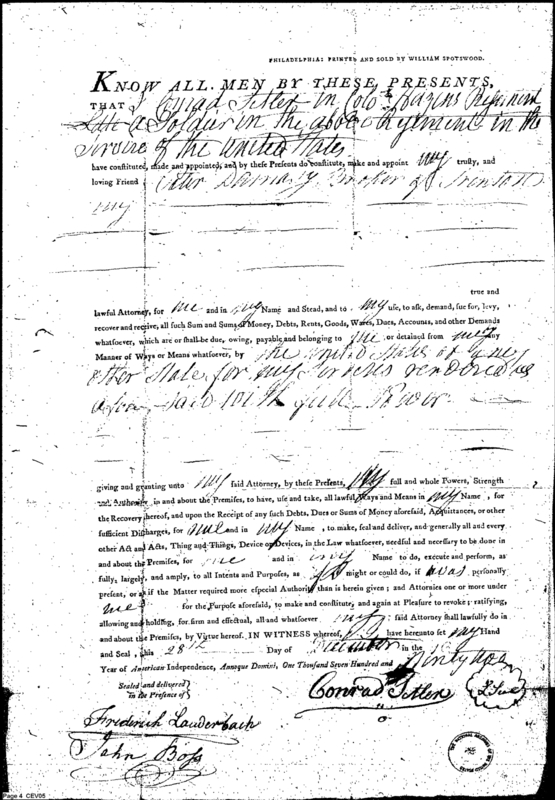 PHILADELPHIA: PRINTED AND SOLD BY WILLIAM SPOTSWOOD.
KNOW ALL MEN BY THESE PRESENTS,
THAT I Conrad Fitler in Colo Hazens Regiment
Late a Soldier in the above Regiment in the
Service of the United States
have constituted, made and appointed, and by these Presents do constitute, make and appoint my trusty, and
loving Friend Peter Broker of Trenton
my
true and
lawful Attorney, for me and in my Name and Stead, and to my use, to ask, demand, sue for, levy,
recover and receive, all such Sum and Sums of Money, Debts, Rents, Goods, Wares, Dues, Accounts, and other Demands
whatsoever, which are or shall be due, owing, payable and belonging to me or detained from me any
Manner of Ways or Means whatsoever, by the United States or any
other State for my services rendered as
aforesaid with full Power
giving and granting unto my said Attorney, by these Presents, my full and whole Powers, Strength
and Authority in and about the Premises, to have, use and take, all lawful Ways and Means in my Name, for
the Recovery thereof, and upon the Receipt of any such Debts, Dues or Sums of Money aforesaid, Acquittances, or other
sufficient Discharges, for me and in my Name, to make, seal and deliver, and generally all and every
other Act and Acts, Thing and Things, Device or Devices, in the Law whatsoever, needful and necessary to be done in
and about the Premises, for me and in my Name to do, execute and perform, as
fully, largely, and amply, to all Intents and Purposes, as I might or could do, if was personally
present, or as if the Matter required more especial Authority than is herein given; and Attornies one or more under
me for the Purpose aforesaid, to make and constitute, and again at Pleasure to revoke; ratifying,
allowing and holding, for firm and effectual, all and whatsoever my said Attorney shall lawfully do in
and about the Premises, by Virtue hereof. IN WITNESS whereof, I have hereunto set my Hand
and Seal, this 28th Day of December in the
Year of American Independence, Annoque Domini, One Thousand Seven Hundred and Ninety
Sealed and delivered
in the Presence of
Conrad Fitler
Frederick Lauderbach
John Boss
Page 4 CEV05